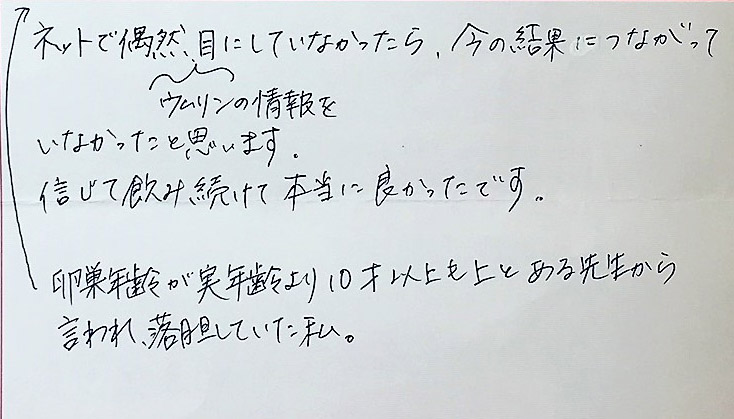 ネットで偶然、目にしていなかったら、今の結果につながって
ウムリンの情報を
いなかったと思います。
信じて飲み続けて本当に良かったです。
卵巣年齢が実年齢より10才以上も上とある先生から
言われ、落胆していた私。